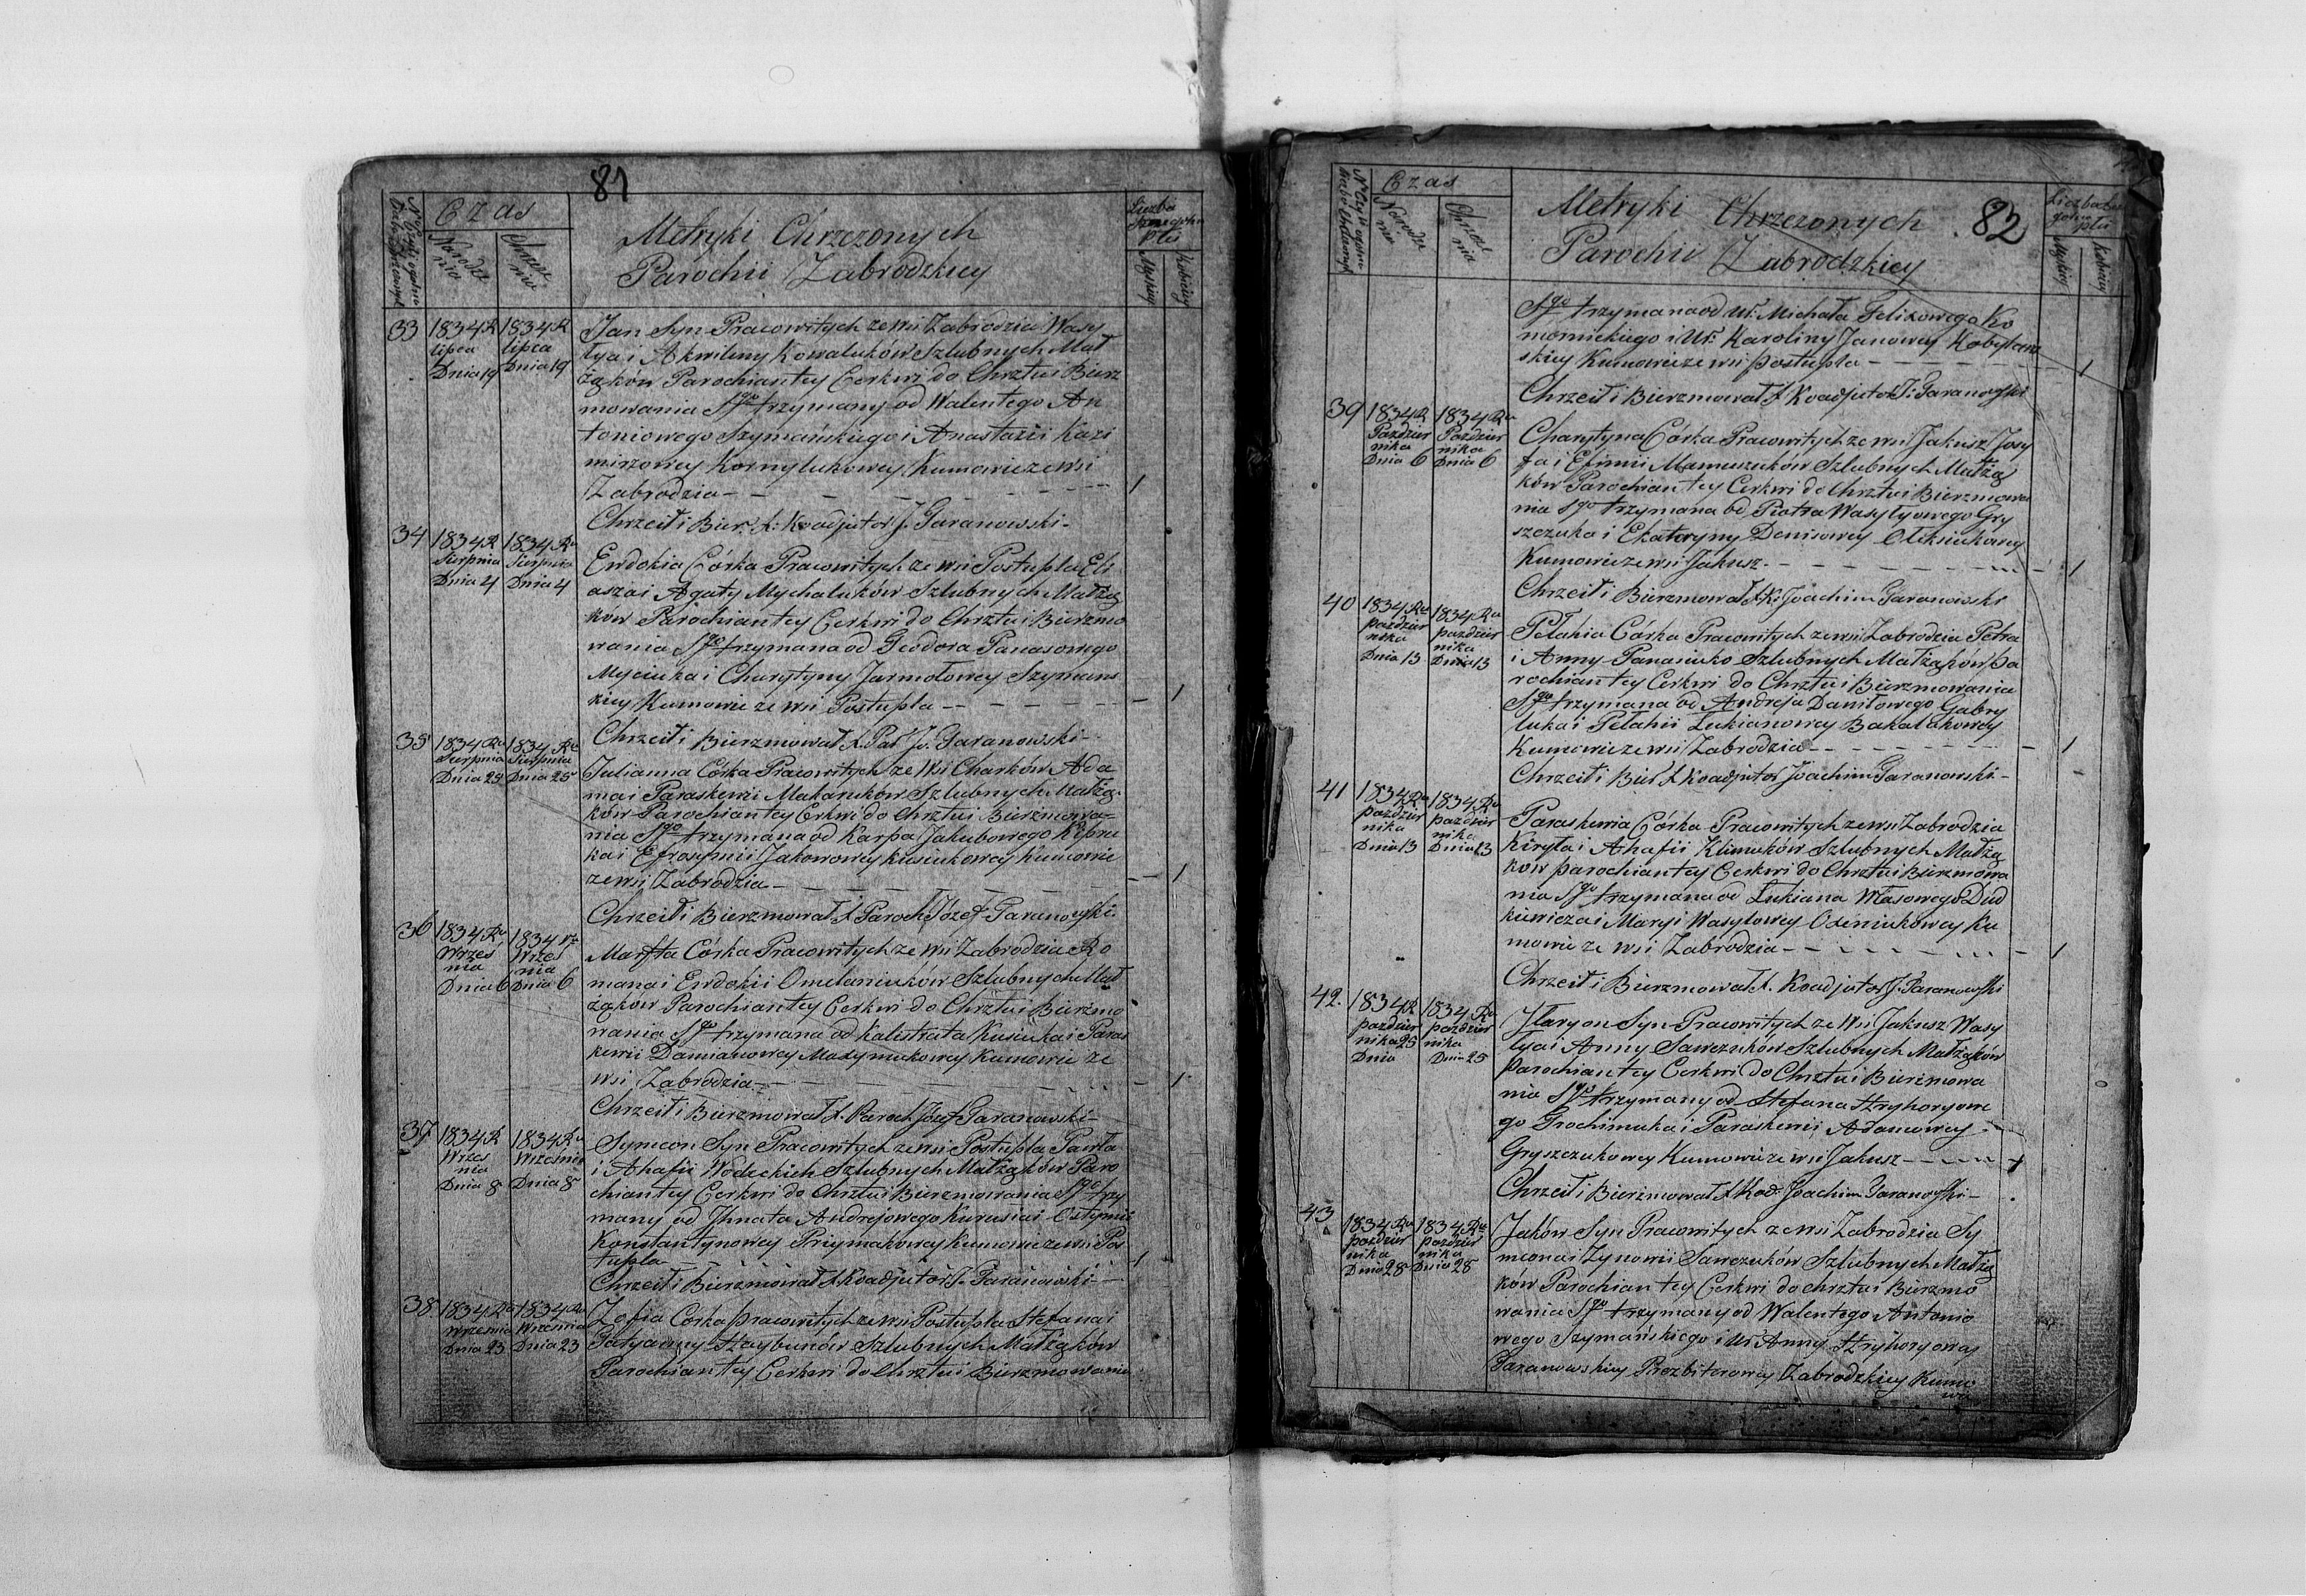 81
Czas
Narodze
nia
Chrzce
nia
Metryki Chrzczonych
Parochii Zabrodzkiey
Liczba
Płci
Męskiey
Kobiecey
33
1834 R
lipca
Dnia 19
1834 R
lipca
Dnia 19
Jan Syn Pracowitych ze wsi Zabrodzia Wasy
lya i Akwiliny Kowaluków Szlubnych Mał
żąków Parochian tey Cerkwi do Chrztu i Bierz
mowania Sgo trzymany od Walentego An
toniowego Szymańskiego i Anastazii Kazi
mirzowey Kornylukowey Kumowie ze wsi
Zabrodzia - - - - - - 1
Chrzcił i Bier: X: Koadjutor J. Taranowski -
34
1834 R
Sierpnia
Dnia 4
1834 Ru
Sierpnia
Dnia 4
Ewdokia Córka Pracowitych ze wsi Postupla Eli
asza i Agaty Mychaluków Szlubnych Małżą
ków Parochian tey Cerkwi do Chrztu i Bierzmo
wania Sgo trzymana od Teodora Panasowego
Myciuka i Charytyny Jarmołowey Szymans
kiey Kumowie ze wsi Postupla - - - - - 1
Chrzcił i Bierzmował X. Par Jó. Taranowski -
35
1834 Ru
Sierpnia
Dnia 25
1834 Ru
Sierpnia
Dnia 25
Julianna Córka Pracowitych ze Wsi Charków Ada
ma i Paraskewii Makaruków Szlubnych Małżą-
ków Parochian tey Cerkwi do Chrztu i Bierzmowa=
nia Sgo trzymana od Karpa Jakubowego Kipru
ka i Efrosymii Jakowowey Kusiukowey Kumowie
ze wsi Zabrodzia - - - - - - 1
Chrzcił i Bierzmował X Paroch Józef Taranowski.
36
1834 Ru
Wrześ
nia
Dnia 6
1834 r
Wrześ
nia
Dnia 6
Marfta Córka Pracowitych ze wsi Zabrodzia Ro
mana i Ewdokii Omelaniuków Szlubnych Mał
żąków Parochian tey Cerkwi do Chrztu i Bierzmo
wania Sgo trzymana od Kalistrata Kusiuka i Paras
kewii Damianowey Maxymukowey Kumowie ze
wsi Zabrodzia - - - - - - 1
Chrzcił i Bierzmował X. Paroch Józef Taranowski -
37
1834 R
Wrześ
nia
Dnia 8
1834 Ru
Wrześnie
Dnia 8
Symeon Syn Pracowitych ze wsi Postupla Pawła
i Ahafii Wodeckich Szlubnych Małżąków Paro
chian tey Cerkwi do Chrztu i Bierzmowania Sgo trzy
many od Ihnata Andrejowego Kurusia i Ostymii
Konstantynowey Priymakowey Kumowie ze wsi Pos
tupla - - - - - 1
Chrzcił i Bierzmował X Koadjutor J. Taranowski -
38.
1834 Ru
Września
Dnia 23
1834 Ru
Września
Dnia 23
Zofia Córka Pracowitych ze wsi Postupla Stefana i
Tatyanny Strybunów Szlubnych Małżąków
Parochian tey Cerkwi do Chrztu i Bierzmowania
Czas
Narodze
nia
Chrzce
nia
Metryki Chrzczonych 82
Parochii Zabrodzkiey
płci
Męskiey
Kobiecey
Sgo trzymana od Ur: Michała Felixowego Ko
mornickiego i Ur: Karoliny Janowey Kobylans
skiey Kumowie ze wsi Postupla - - - - - 1
Chrzcił i Bierzmował X Koadjutor J: Taranowski
39
1834 R
Pazdzier
nika
Dnia 6
1834 Ru
Pazdzier
nika
Dnia 6
Charytyna Córka Pracowitych ze wsi Jakusz Josy
fa i Efimii Mamuszuków Szlubnych Małżą
ków Parochian tey Cerkwi do Chrztu i Bierzmowa
nia Sgo trzymana od Piotra Wasylyowego Gry
szczuka i Ekateryny Denisowey Oleksiukowey
Kumowie ze wsi Jakusz - - - - - 1
Chrzcił i Bierzmował X K: Joachim Taranowski
40
1834 Ru
pazdzier
nika
Dnia 13
1834 Ru
pazdzier
nika
Dnia 13
Pełahia Córka Pracowitych ze wsi Zabrodzia Petra
i Anny Panasiuko Szlubnych Małżąków Pa
rochian tey Cerkwi do Chrztu i Bierzmowania
Sgo trzymana od Andreja Daniłowego Gabry
luka i Pełahii Lukianowey Bakalukowey
Kumowie ze wsi Zabrodzia - - - - - 1
Chrzcił i Bier X Koadjutor Joachim Taranowski -
41
1834 Ru
pazdzier
nika
Dnia 13
1834 Ru
pazdzier
nika
Dnia 13
Paraskewia Córka Pracowitych ze wsi Zabrodzia
Kiryła i Ahafii Klimuków Szlubnych Małżą
ków parochian tey Cerkwi do Chrztu i Bierzmowa
nia Sgo trzymana od Lukiana Własowego Dud
kiewicza i Maryi Wasylowey Oxeniukowey Ku
mowie ze wsi Zabrodzia - - - - - 1
Chrzcił i Bierzmował X. Koadjutor J. Taranowski
42.
1834 R
pazdzier
nika 25
Dnia
1834 Ru
pazdzier
nika
Dnia 25
Ilaryon Syn Pracowitych ze wsi Jakusz Wasy
lya i Anny Sawczuków Szlubnych Małżąków
Parochian tey Cerkwi do Chrztu i Bierzmowa
nia Sgo trzymany od Stefana Hryhoryowe
go Prochimuka i Paraskewii Adamowey
Gryszczukowey Kumowie ze wsi Jakusz - - - 1
Chrzcił i Bierzmował X Koad: Joachim Taranowski -
43
1834 Ru
pazdzier
nika
Dnia 28
1834 Ru
pazdzier
nika
Dnia 28
Jaków Syn Pracowitych ze wsi Zabrodzia Sy
meona i Zynowii Sawczuków Szlubnych Małżą
ków Parochian tey Cerkwi do chrztu i Bierzmo
wania Sgo trzymany od Walentego Antonio
wego Szymańskiego i Ur: Anny Hryhoryowey
Taranowskiey Prezbiterowey Zabrodzkiey Kumo
wie